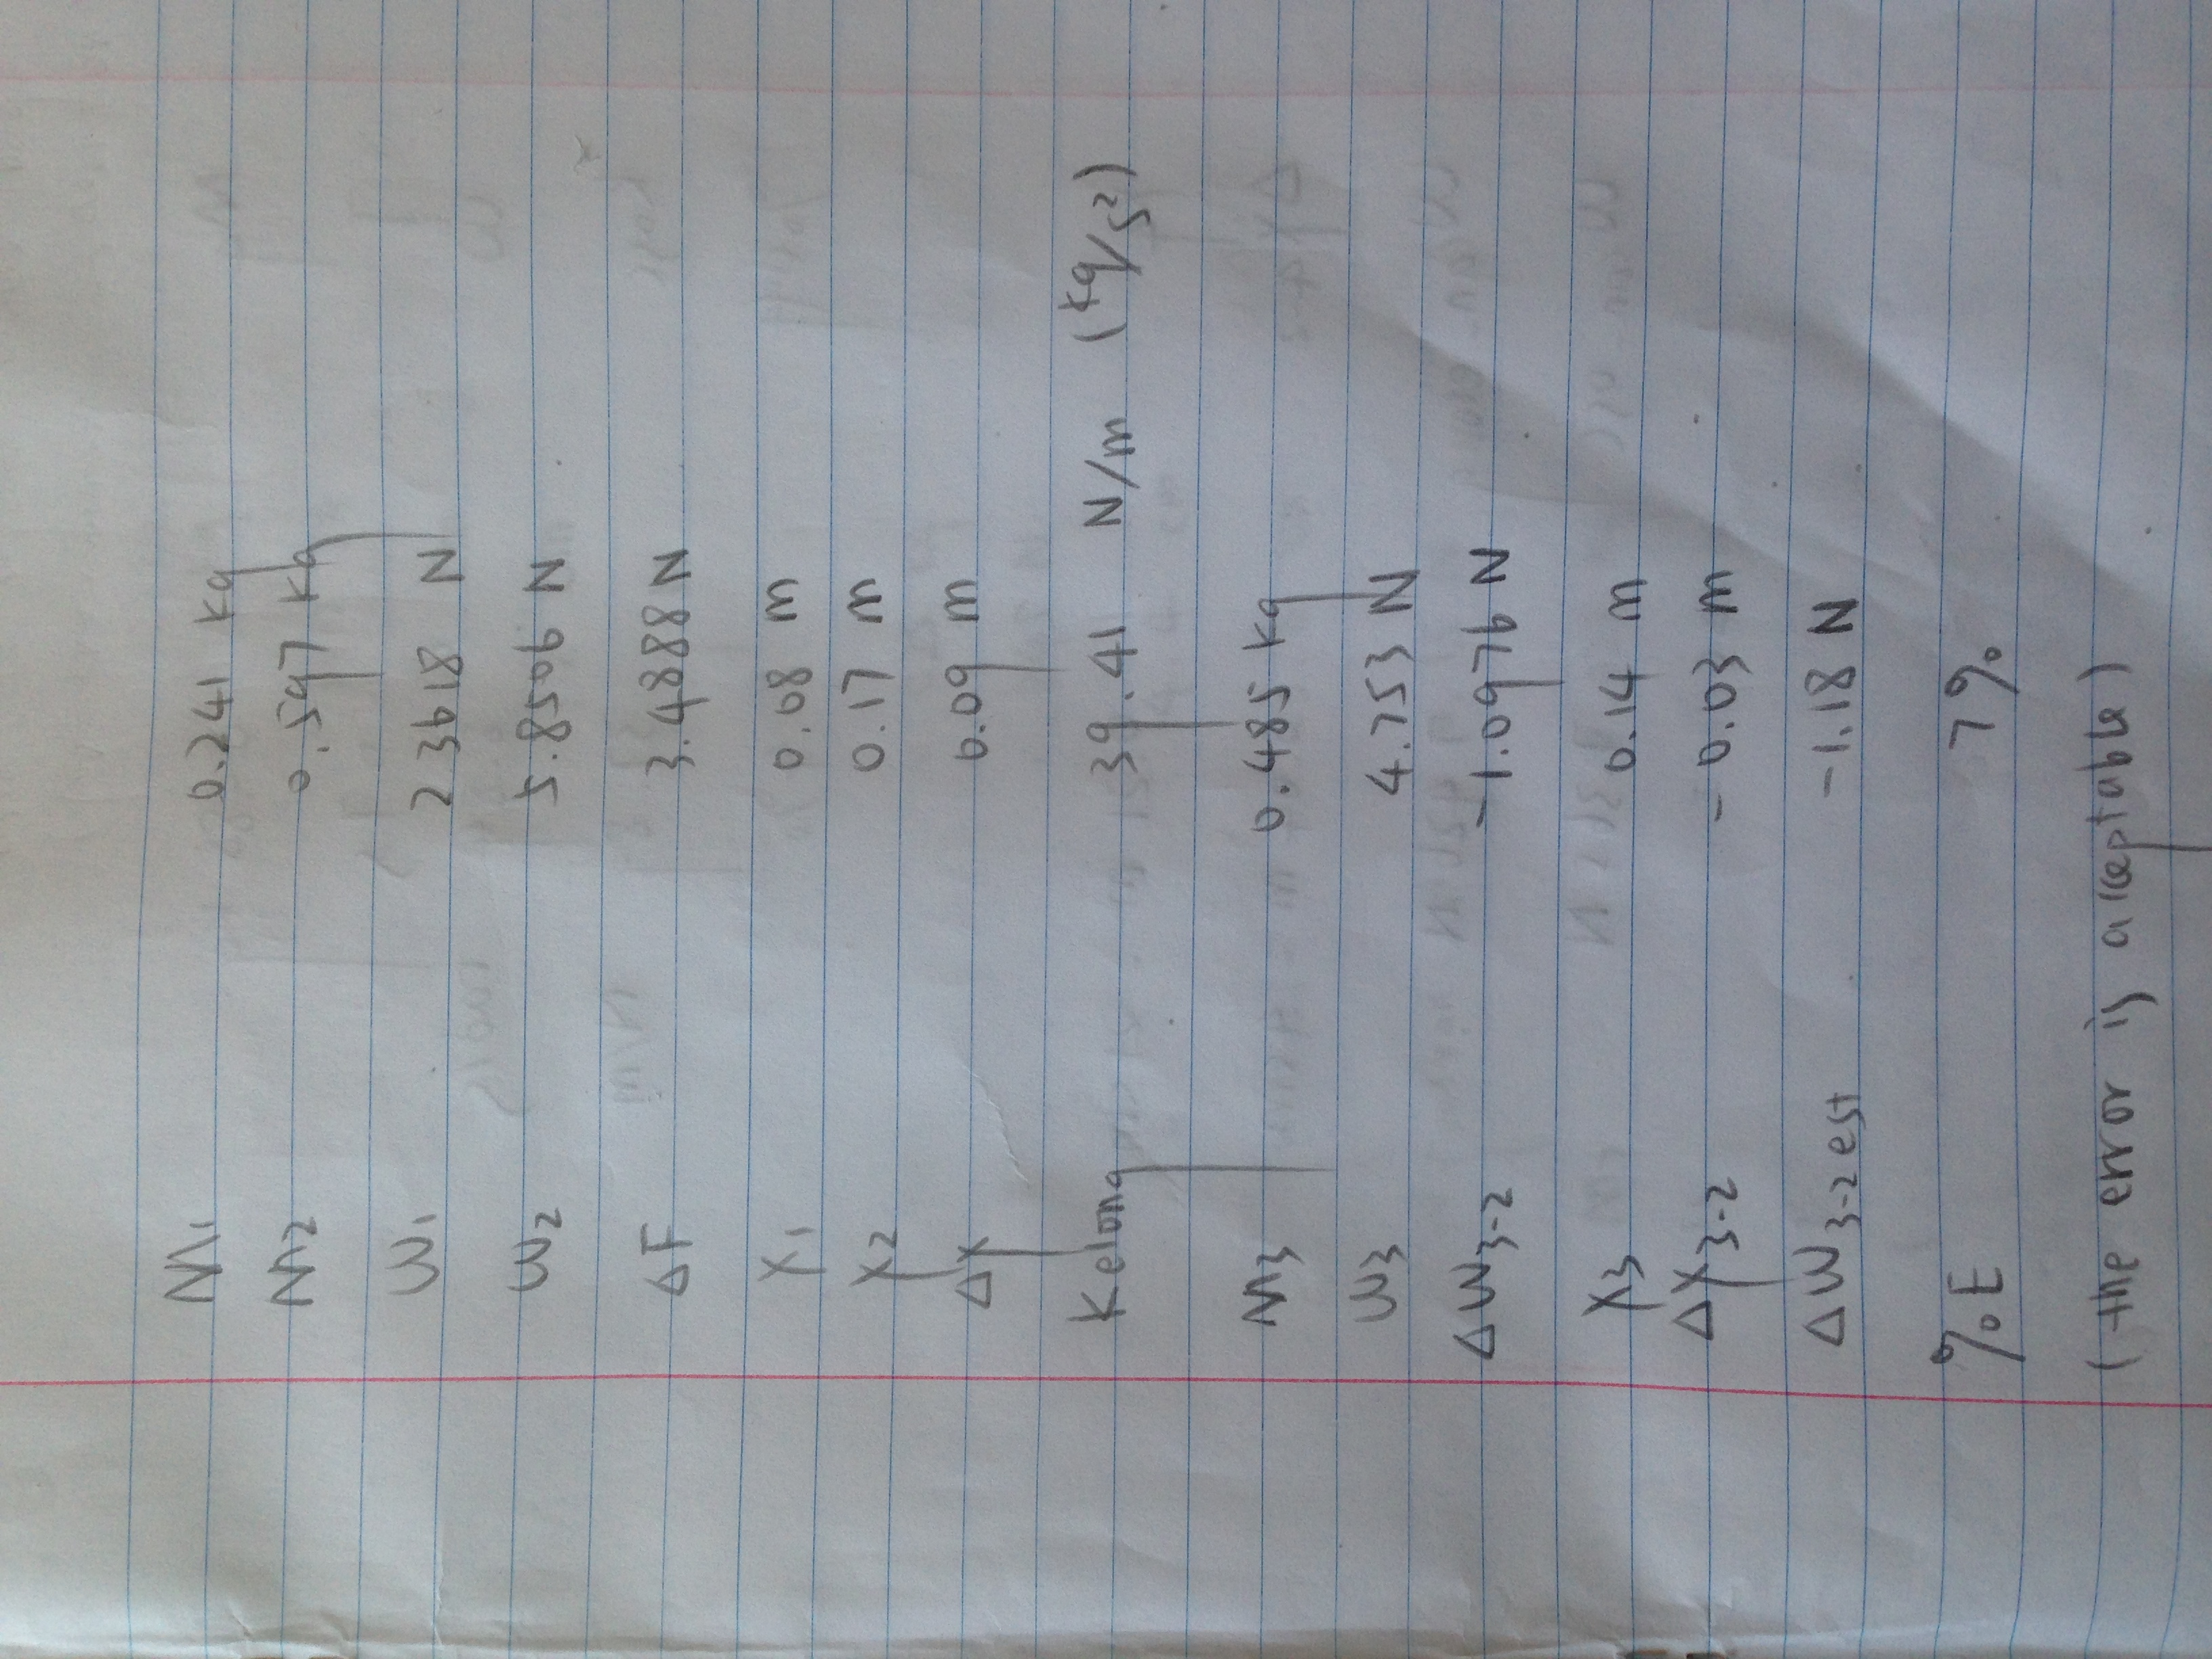 M1 0.241 kg
M2 0.597 kg
W1 2.3618 N
W2 5.8506 N
ΔF 3.4888 N
X1 0.08 m
X2 0.17 m
ΔX 0.09 m
Kelong 39.41 N/m (kg/s²)
M3 0.485 kg
W3 4.753 N
ΔW3-2 -1.0976 N
X3 0.14 m
ΔX3-2 -0.03 m
ΔW3-2 est -1.18 N
%E 7%
(the error is acceptable)